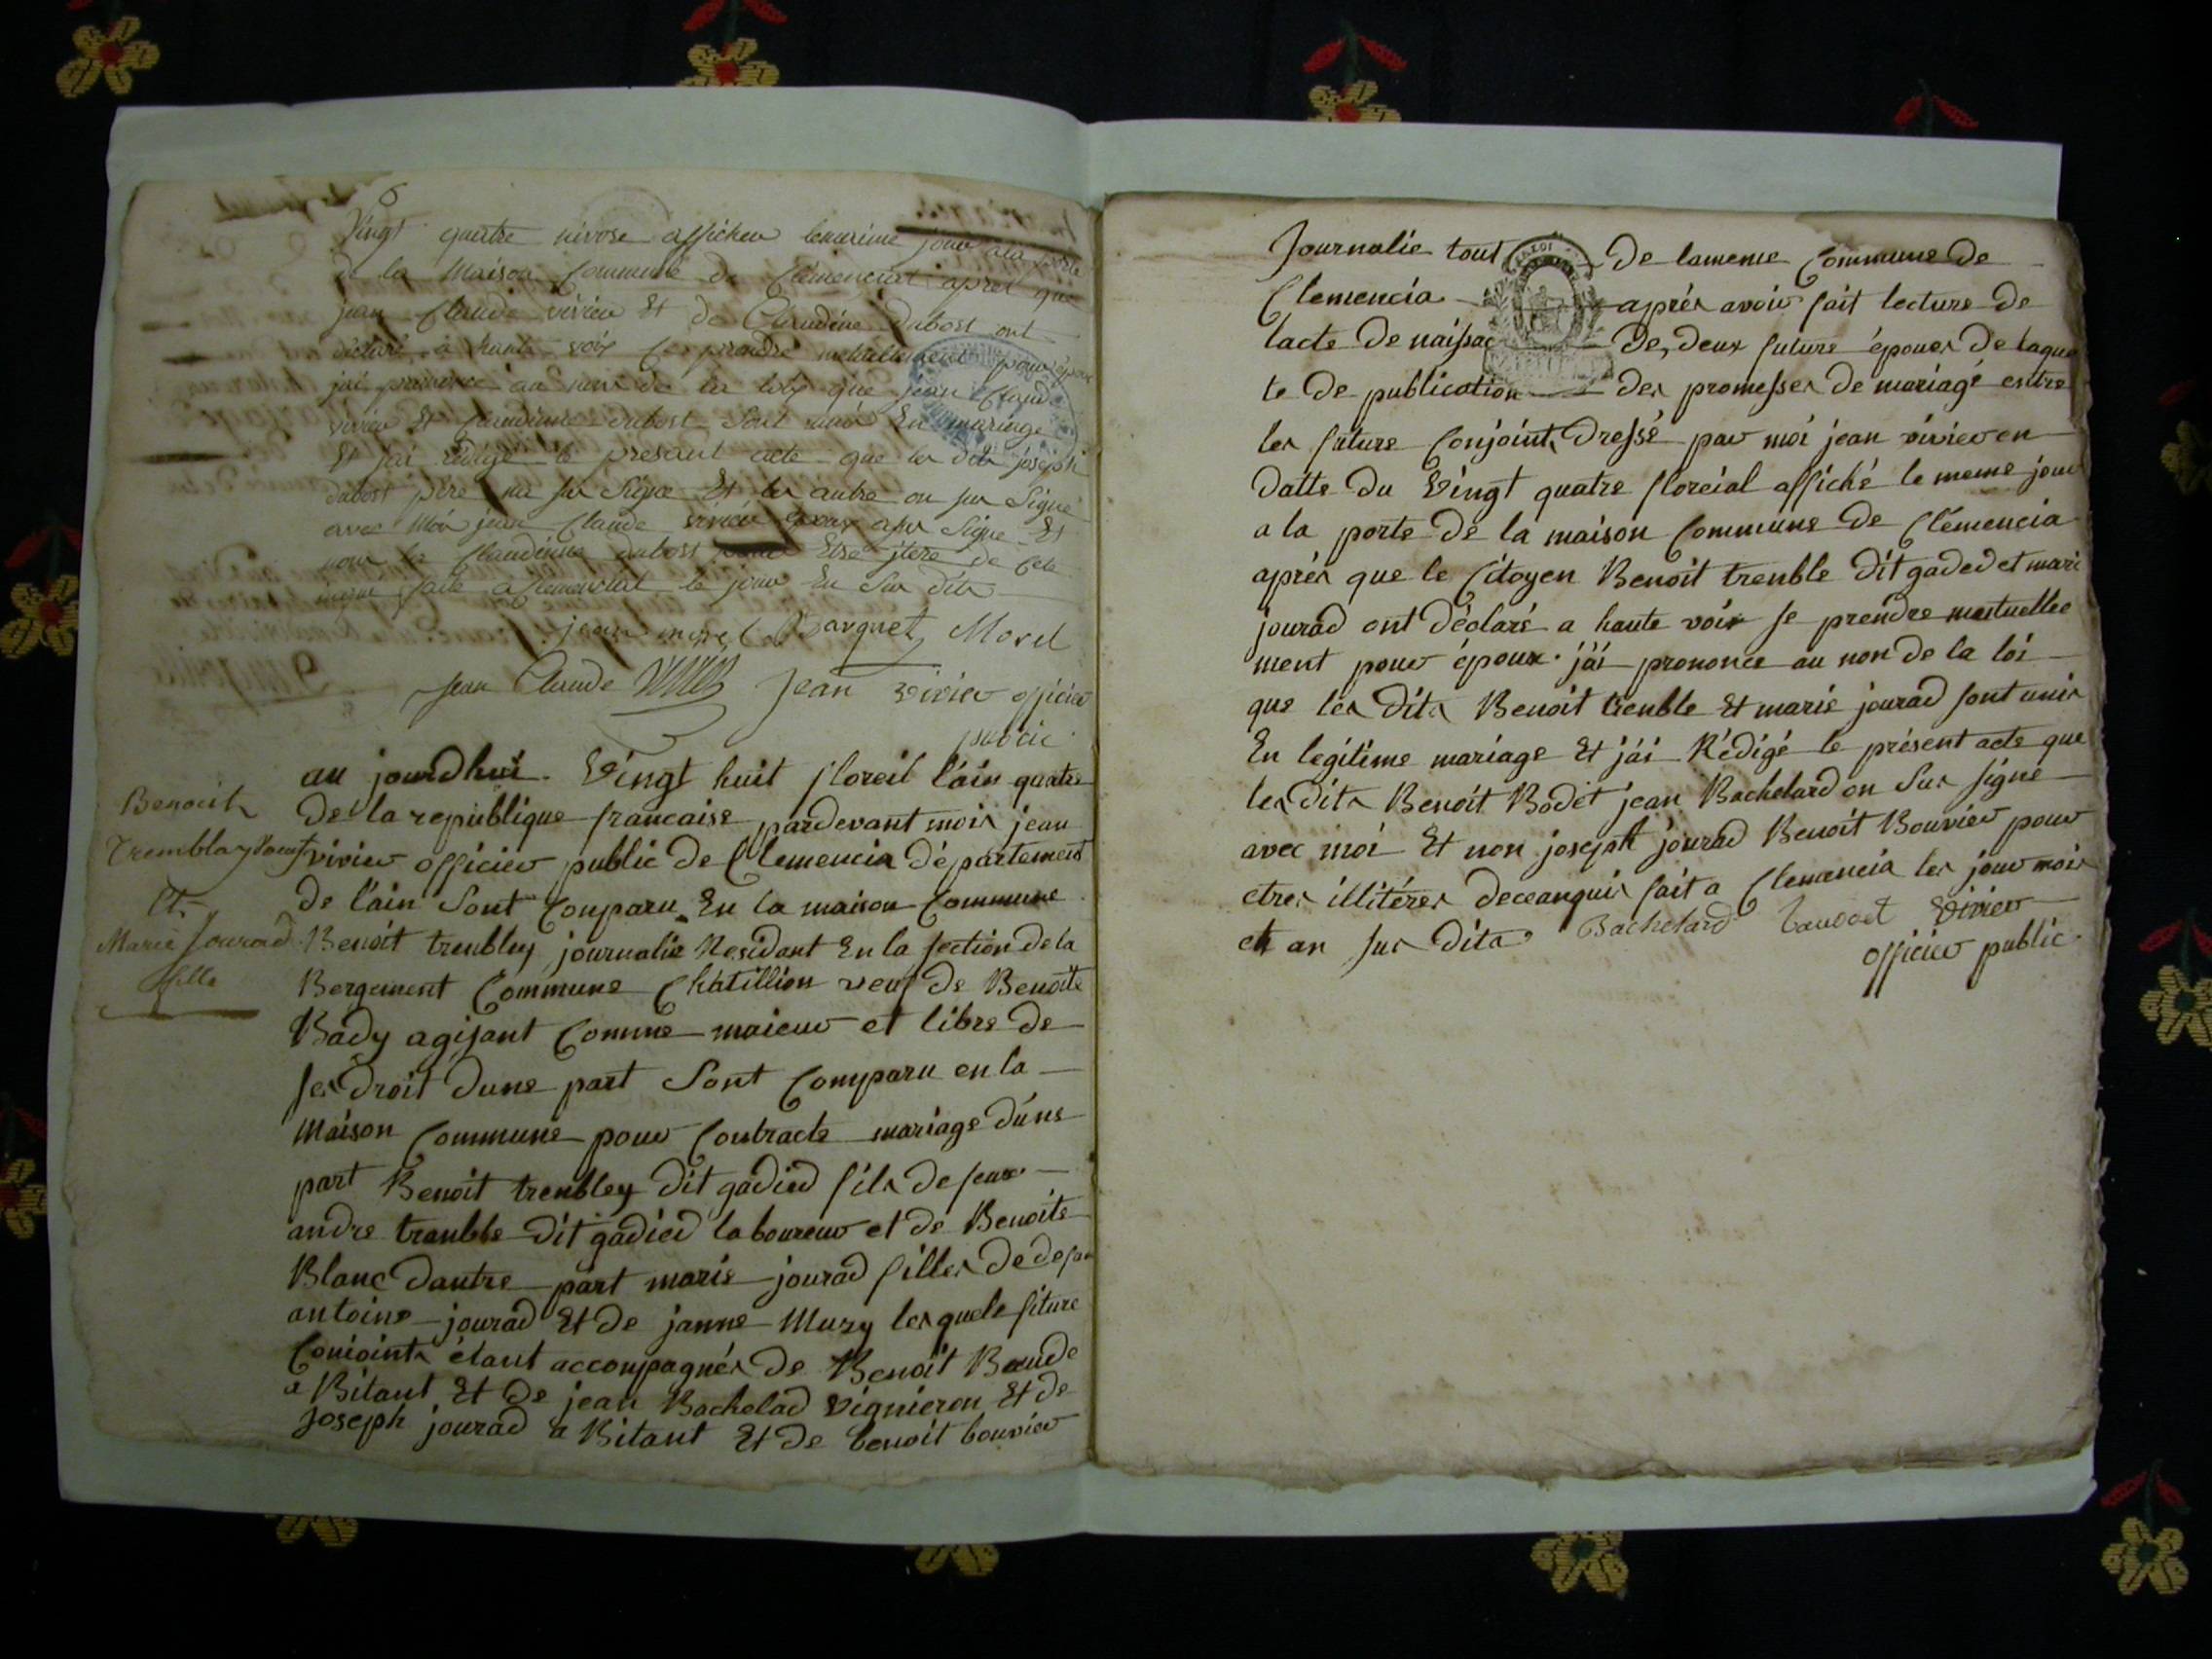 6
Vingt quatre nivose afficheu lemeime jour a la porte
de la Maison Commune de Clémenciat apres que
jean Claude vivieu Et de Claudine dubost ont
déclaré a haute voix Ce prendre mutuellement pour époux
jai prononcé au nom de la loy que jean Claude
vivieu Et Claudine dubost Sont unis En mariage
Et jai rédigé le presant acte que les dits joseph
dubost père na su Signé Et les autre on su Signé
avec Moi jean Claude vivieu époux a su Signé Et
non la Claudinne dubost Etre
faite a Clemenciat le jour En Sur dits
jean morel Barguet Morel
Jean Claude Jean vivier officier
public
Benoit
Tremblay veuf
Et
Marie Jourad
fille
au jourdhui. Vingt huit floreil l'ain quatre
de la republique francaise pardevant mois jean
vivier officier public de Clemencia département
de l'ain Sont Conparu En la maison Commune
Benoit trenbley journalié Residant En la section de la
Bergement Commune Chatillion veuf de Benoite
Bady agisant Comme maieur et libre de
ses droit dune part Sont Comparu en la
Maison Commune pour Contracte mariage dúne
part Benoit trenbley dit gadied fils de feux
andre tranble dit gadied laboureur et de Benoite
Blanc dautre part marie jourad filles de defeu
antoine jourad Et de janne Muzy lesquele fiture
Conioints étant accompagnés de Benoit Baude
a Bitant Et de jean Bachelad Vignieron Et de
Joseph jourad a Bitant Et de benoit bouvier
Journalie tout de lameme Commune de
Clemencia après avoir fait lecture de
lacte de naissac de, deux future épouer de laque
te de publication des promesses de mariagé entre
les future Conjoints Dressé par moi jean vivier en
datte du Vingt quatre floreial affiché le meme jour
a la porte de la maison Commune de Clémencia
aprés que le Citoyen Benoit trenble dit gaded et mari
jourad ont déclaré a haute voix se prendre mutuelle
ment pour époux. jái prononce au non de la loi
que les dits Benoit trenble Et marie jourad sont unis
En legitime mariage Et jái Rédigé le présent acte que
les dits Benoit Bodet jean Bachelard on Sus signe
avec moi Et non joseph jourad Benoit Bouvier pour
etres illitéres deceanquis fait a Clemencia les jour mois
et an sus dits Bachelard baudet Vivier
officier public.